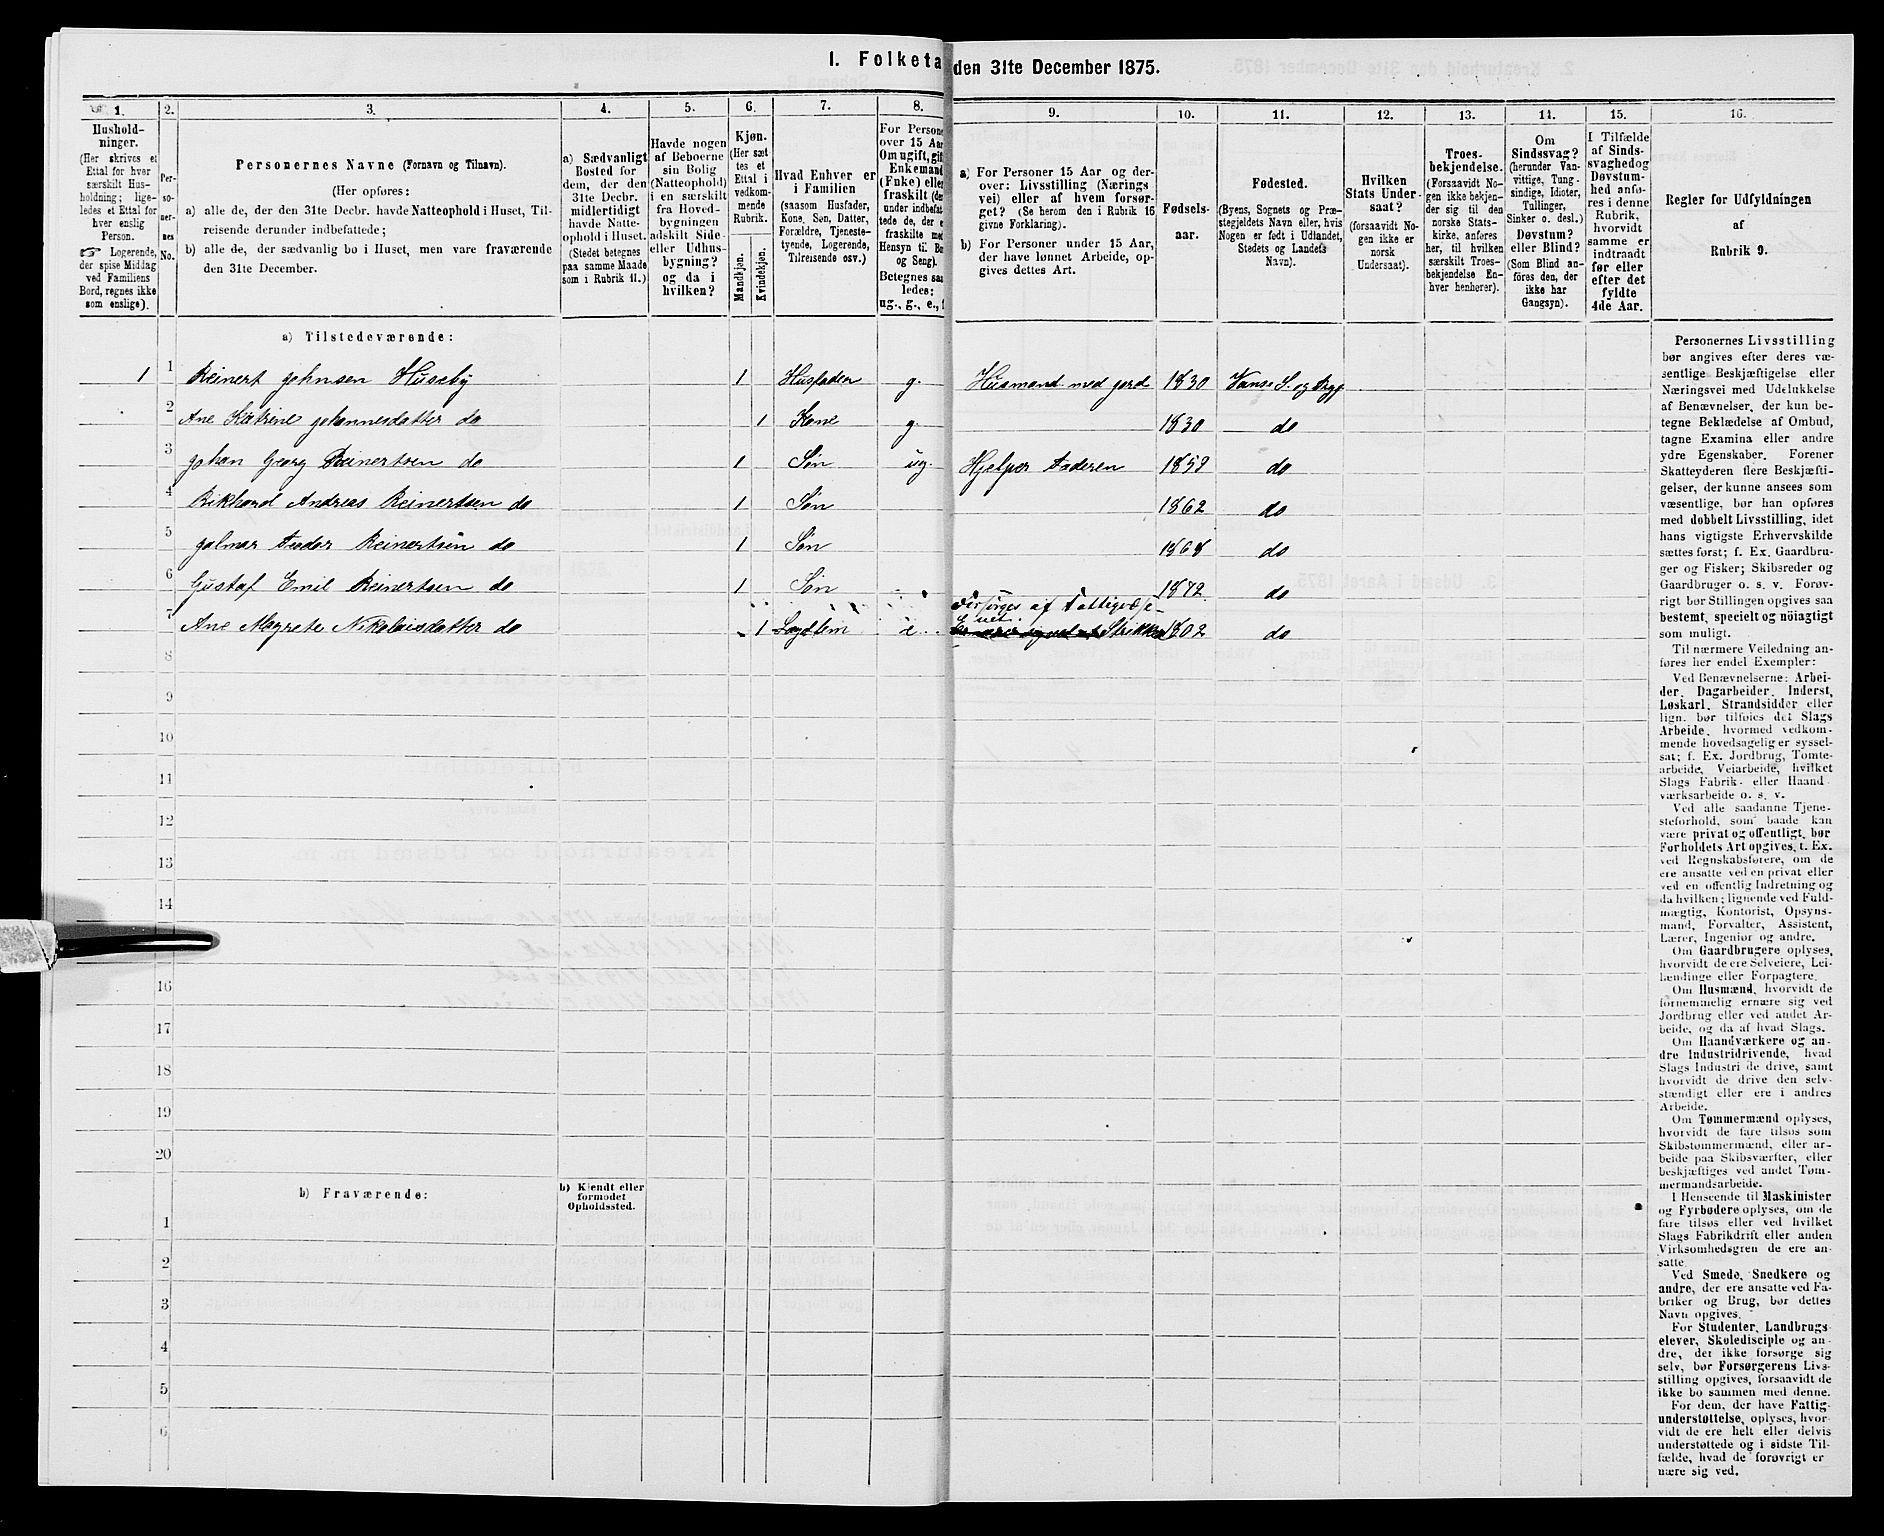 I. Folketa
den 31te December 1875.
1.
2.
3.
4.
5.
6.
7.
8.
9.
10.
11.
12.
13.
14.
15.
16.
Hushold-
ninger.
(Her skrives et
Ettal for hver
særskilt Hus-
holdning; lige-
ledes et Ettal for
hver enslig
Person.
☞ Logerende,
der spise Middag
ved Familiens
Bord, regnes ikke
som enslige).
Per-
so-
ner-
nes
No.
Personernes Navne (Fornavn og Tilnavn).
(Her opføres:
a) alle de, der den 31te Decbr. havde Natteophold i Huset, Til-
reisende derunder indbefattede;
b) alle de, der sædvanlig bo i Huset, men vare fraværende
den 31te December.
a) Sædvanligt
Bosted for
dem, der den
31te Decbr.
midlertidigt
havde Natte-
ophold i Huset.
(Stedet betegnes
paa samme Maade
som i Rubrik 11.)
Havde nogen
af Beboerne
sin Bolig
(Natteophold)
i en særskilt
fra Hoved-
bygningen
adskilt Side-
eller Udhus-
bygning?
og da i
hvilken?
Kjøn.
(Her sæt
tes et
Ettal i
vedkom-
mende
Rubrik.
Mandkjøn.
Kvindekjøn.
Hvad Enhver er
i Familien
(saasom Husfader,
Kone, Søn, Datter,
Forældre, Tjeneste-
tyende, Logerende,
Tilreisende osv.)
For Persone
over 15 Aar
Om ugift, gif
Enkemand
(Enke) elle
fraskilt (de
under indbefat
tede de, der e
fraskilte me
Hensyn til Bo
og Seng).
Betegnes saa
ledes:
ug., g., e., f
a) For Personer 15 Aar og der-
over: Livsstilling (Nærings
vei) eller af hvem forsør-
get? (Se herom den i Rubrik 16
givne Forklaring).
b) For Personer under 15 Aar,
der have lønnet Arbeide, op-
gives dettes Art.
Fødsels-
aar.
Fødested.
(Byens, Sognets og Præ-
stegjeldets Navn eller, hvis
Nogen er født i Udlandet,
Stedets og Landets
Navn).
Hvilken
Stats Under-
saat?
(forsaavidt No-
gen ikke er
norsk
Undersaat).
Troes-
bekjendelse.
(Forsaavidt No-
gen ikke bekjen-
der sig til den
norske Stats-
kirke, anføres
her, til hvilken
særskilt Troes-
bekjendelse En-
hver henhører).
Om
Sindssvag?
(herunder Van-
vittige, Tung-
sindige, Idioter,
Tullinger,
Sinker o. desl.)
Døvstum?
eller Blind?
(Som Blind an-
føres den, der
ikke har
Gangsyn).
I Tilfælde
af Sinds-
svaghed og
Døvstum-
hed anfø-
res i denne
Rubrik,
hvorvidt
samme er
indtraadt
før eller
efter det
fyldte
4de Aar.
Regler før Udfyldningen
af
Rubrik 9.
a) Tilstedeværende:
1 1 Reinert Johnsen Huseby 1 Husfader g. Husmand med jord 1830 Vanse S. og Prgj
2 Ane Katrine Johannesdatter do 1 Kone g. 1830 do
3 Johan Georg Reinertsen do 1 Søn ug. Hjelper Faderen 1859 do
4 Rikhard Andreas Reinertsen do 1 Søn 1862 do
5 Jalmar Teodor Reinertsen do 1 Søn 1868 do
6 Gustaf Emil Reinertsen do 1 Søn 1872 do
Forsørges af Fattigvæse-
net.
7 Ane Magrete Nikolaisdatter do 1 Lægdlem e. Strikker 1802 do
8
9
10
11
12
13
14
16
17
18
19
20
b) Fraværende:
b) Kjendt eller
formodet
Opholdssted.
1
2
3
4
5
6
Personernes Livsstilling
bør angives efter deres væ-
sentlige Beskjæftigelse eller
Næringsvei med Udelukkelse
af Benævnelser, der kun be-
tegne Beklædelse af Ombud,
tagne Examina eller andre
ydre Egenskaber. Forener
Skatteyderen flere Beskjæfti-
gelser, der kunne ansees som
væsentlige, bør han opføres
med dobbelt Livsstilling, idet
hans vigtigste Erhvervskilde
sættes først; f. Ex. Gaardbru-
ger og Fisker; Skibsreder og
Gaardbruger o. s. v. Forøv-
rigt bør Stillingen opgives saa
bestemt, specielt og nøiagtigt
som muligt.
Til nærmere Veiledning an-
føres her endel Exempler:
Ved Benævnelserne: Arbei-
der, Dagarbeider, Inderst,
Løskarl, Strandsidder eller
lign. bør tilføies det Slags
Arbeide, hvormed vedkom-
mende hovedsagelig er syssel-
sat; f. Ex. Jordbrug, Tomte-
arbeide, Veiarbeide, hvilket
Slags Fabrik- eller Haand-
værksarbeide o. s. v.
Ved alle saadanne Tjene-
steforhold, som baade kan
være privat og offentligt, bør
Forholdets Art opgives, t. Ex.
ved Regnskabsførere, om de
ere ansatte ved en privat eller
ved en offentlig Indretning og
da hvilken; lignende ved Fuld-
mægtig, Kontorist, Opsyns-
mand, Forvalter, Assistent,
Lærer, Ingeniør og andre.
Om Gaardbrugere oplyses,
hvorvidt de ere Selveiere, Lei-
lændinge eller Forpagtere.
Om Husmænd, hvorvidt de
fornemmelig ernære sig ved
Jordbrug eller ved andet Ar-
beide, og da af hvad Slags.
Om Haandværkere og an-
dre Industridrivende, hvad
Slags Industri de drive, samt
hvorvidt de drive den selv-
stændigt eller ere i andres
Arbeide.
Om Tømmermænd oplyses,
hvorvidt de fare tilsøs som
Skibstømmermænd, eller ar-
beide paa Skibsværfter, eller
beskjæftiges ved andet Tøm-
mermandsarbeide.
I Henseende til Maskinister
og Fyrbødere oplyses, om de
fare tilsøs eller ved hvilket
Slags Fabrikdrift eller anden
Virksomhedsgren de ere an-
satte.
Ved Smede, Snedkere og
andre, der ere ansatte ved Fa-
briker og Brug, bør dettes
Navn opgives.
For Studenter, Landbrugs-
elever, Skoledisciple og an-
dre, der ikke forsørge sig
selv, bør Forsørgerens Livs-
stilling opgives, forsaavidt de
ikke bo sammen med denne.
For dem, der have Fattig-
understøttelse, oplyses, hvor-
vidt de ere helt eller delvis
understøttede og i sidste Til-
fælde, hvad de forøvrigt er
nære sig ved.